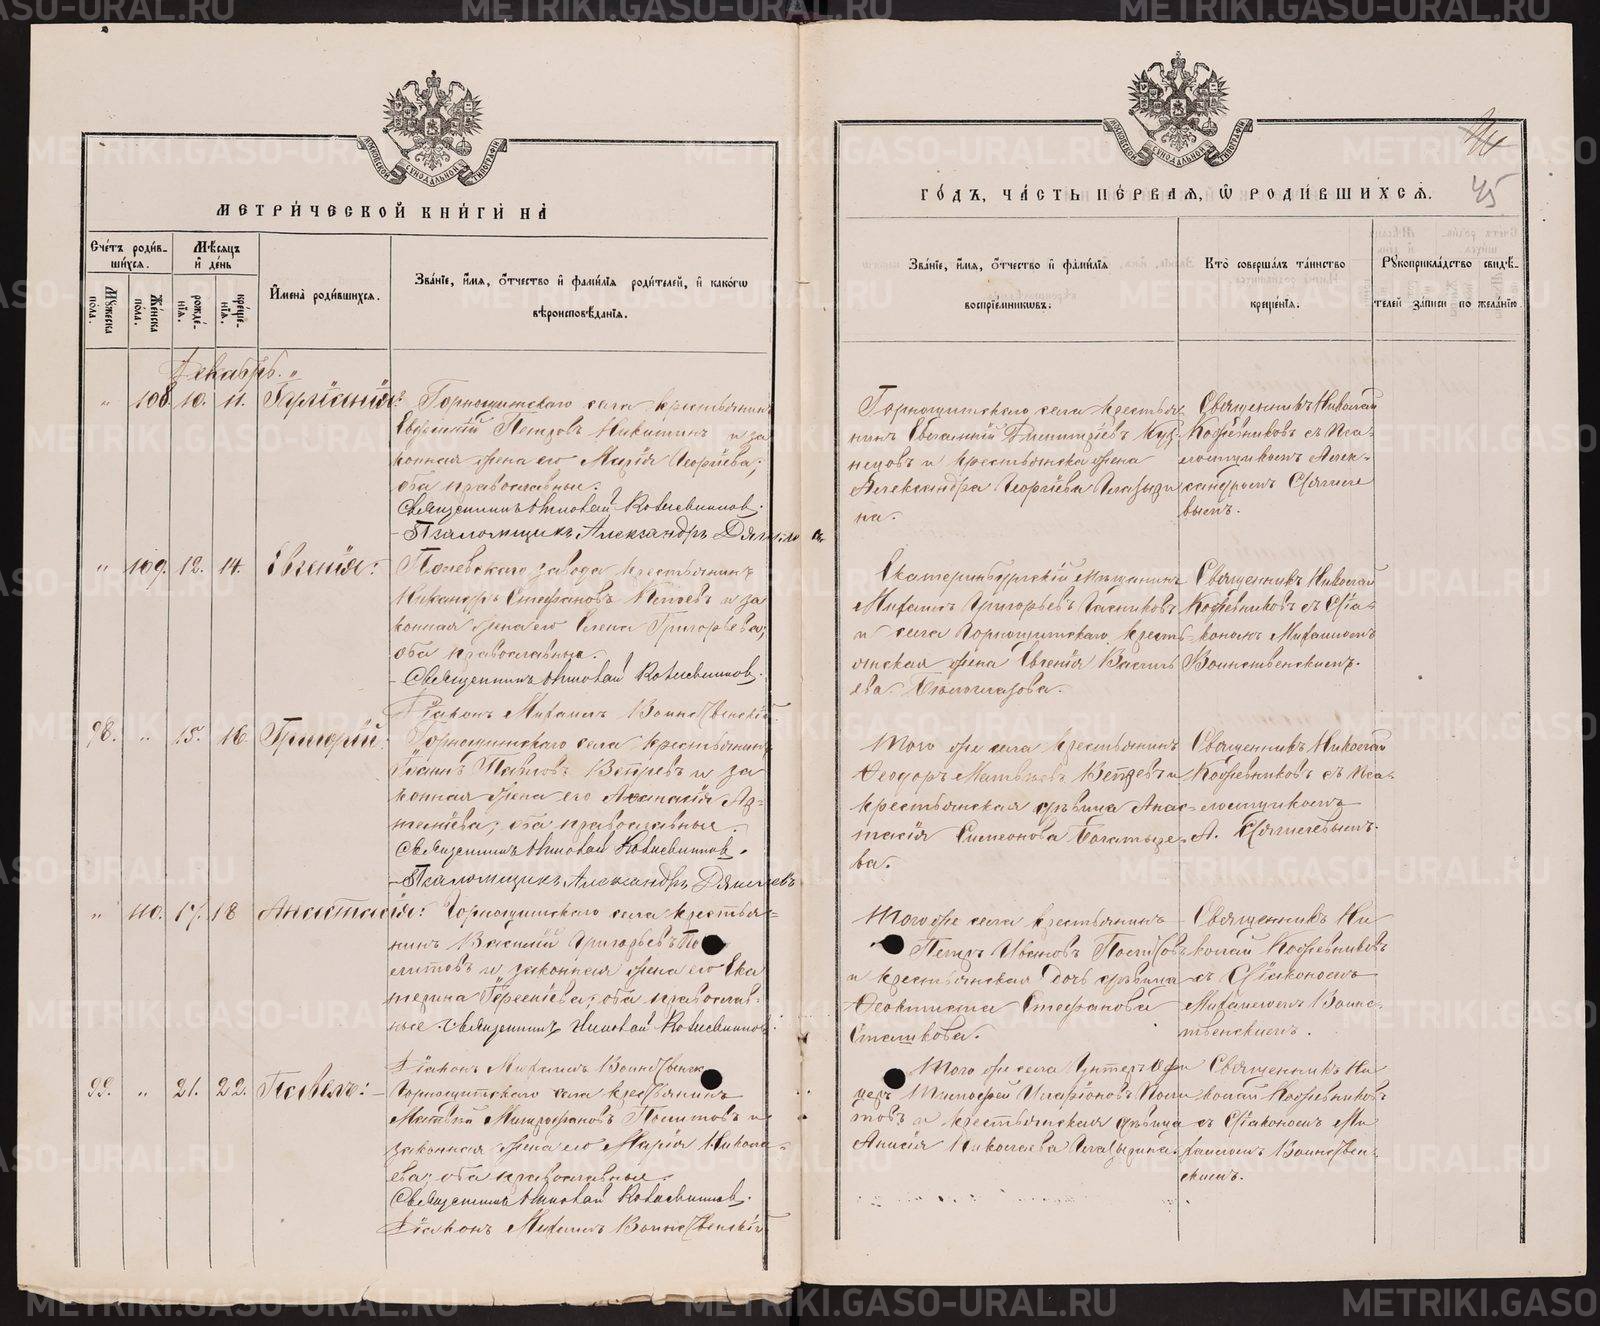 МЕТРИ́ЧЕСКОЙ КНИ́ГИ НА̀
Сче́тъ роди́в-
ши́хся.
Мѣ́сяцъ
и҆ де́нь
Му́жеска пола.
Же́нска пола.
рожде́-
нїѧ.
креще́-
нїѧ.
И҆мена̀ роди́вшихся.
Зва́нїе, и҆́мя, ѻ҆́тчество и҆ фами́лїя роди́телей, и҆ како́гѡ
вѣроисповѣ́данїя.
Декабрь.
" 108. 10. 11. Іуліанія: Горнощитскаго села крестьянинъ
Евфимій Петровъ Никитинъ и за
конная жена его Марія Георгіева;
оба православные.
Священникъ Николай Кожевниковъ.
Псаломщикъ Александръ
" 109. 12. 14. Евгенія: Полевскаго завода крестьянинъ
Никандръ Стефановъ и за
конная жена его Елена Григорьева;
оба православные.
Священникъ Николай Кожевниковъ.
Діаконъ Михаилъ Воинственскій
98. " 15. 16. Григорій: Горнощитскаго села крестьянинъ
Павловъ Вепревъ и за
конная жена его Ар-
темиева; оба православные.
Священникъ Николай Кожевниковъ.
Псаломщикъ Александръ
" 110. 17. 18 Анастасія: Горнощитскаго села крестья-
нинъ Василій Григорьевъ По
литовъ и законная жена его Ека
терина Терентіева; оба православ-
ные. Священникъ Николай Кожевниковъ.
Діаконъ Михаилъ Воинственск
99. " 21. 22. Павелъ: Горнощитскаго села крестьянинъ
Матвѣй Митрофановъ Политовъ и
законная жена его Марія Никола-
ева; оба православные.
Священникъ Николай Кожевниковъ.
Діаконъ Михаилъ Воинственскій
ГО́ДЪ, ЧА́СТЬ ПЕ́РВАЯ, Ѡ҆ РОДИ́ВШИХСѦ.
45
Зва́нїе, и҆́мя, ѻ҆́тчество и҆ фами́лїя
воспрїе́мниковъ.
Кто̀ соверша́лъ та́инство
креще́нїя.
Рукоприкла́дство свидѣ́-
телей за́писи по жела́нїю.
Горнощитскаго села крестья
нинъ Евгеній Димитріевъ Куз
нецовъ и крестьянска жена
Александра Георгіева Глазыри
на.
Священникъ Николай
Кожевниковъ съ Пса-
ломщикомъ Алек-
сандромъ
Екатеринбургскій мѣщанинъ
Михаилъ Григорьевъ Часниковъ
и села Горнощитскаго кресть-
янская жена Евгенія Василь
ева Бѣлоглазова.
Священникъ Николай
Кожевниковъ съ Діа-
кономъ Михаиломъ
Воинственскимъ.
Того же села крестьянинъ
Ѳеодоръ Матвѣевъ Вепревъ и
крестьянская дѣвица Анас-
тасія Симеонова Богатыре-
ва.
Священникъ Николай
Кожевниковъ съ Пса-
ломщикомъ
Того же села крестьянинъ
Петръ Ивановъ
и крестьянская дочь дѣвица
Ѳеоктиста Стефанова
Сташкова.
Священникъ Ни-
колай Кожевниковъ
съ Діакономъ
Михаиломъ Воинс-
твенскимъ.
Того же села Унтеръ-Офи
церъ Тимофей Иларіоновъ Поли
товъ и крестьянская дѣвица
Анисія Николаева Глазырина.
Священникъ Ни
колай Кожевниковъ
съ Діакономъ Ми
хаиломъ Воинствен-
скимъ.
METRIKI.GASO-URAL.RU